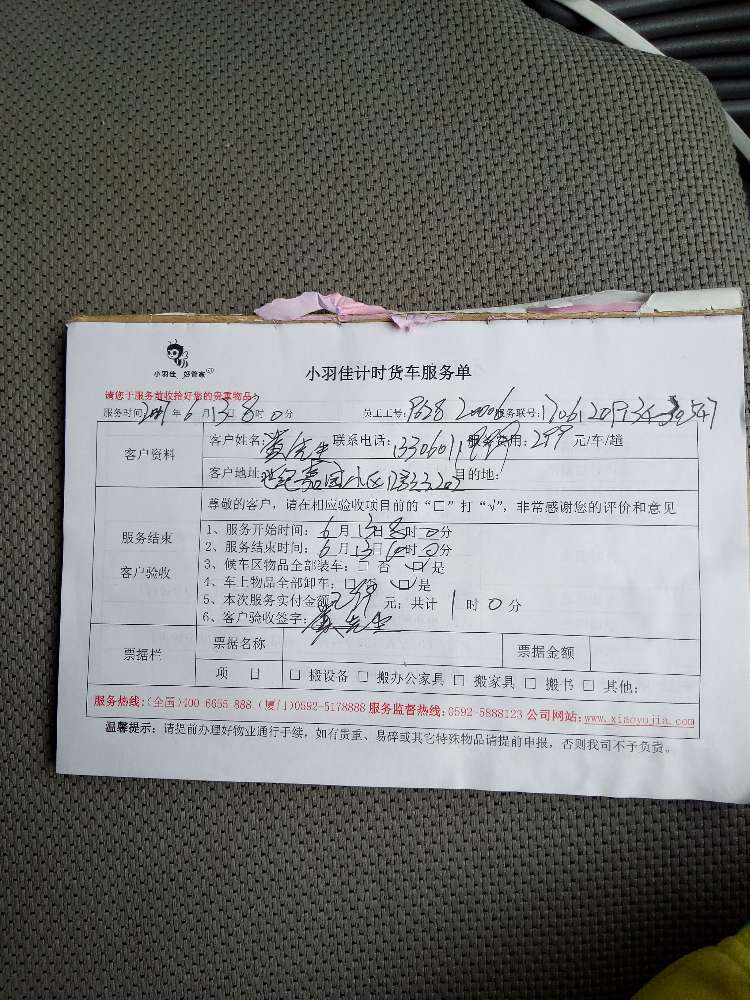 小羽佳 好管家
小羽佳计时货车服务单
请您于服务前收拾好您的贵重物品！
服务时间：2017年6月13日8时0分 员工工号： 服务联号：
客户资料
客户姓名：黄先生 联系电话： 服务费用：299元/车/趟
客户地址：世纪嘉园小区 目的地：
服务结束
客户验收
尊敬的客户，请在相应验收项目前的“□”打“√”，非常感谢您的评价和意见
1、服务开始时间：6月13日8时0分
2、服务结束时间：6月13日 时0分
3、候车区物品全部装车：□ 否 ☑是
4、车上物品全部卸车：□ 否 ☑是
5、本次服务实付金额299元；共计1时0分
6、客户验收签字：黄先生
票据栏
票据名称 票据金额
项 目 □ 搬设备 □ 搬办公家具 □ 搬家具 □ 搬书 □ 其他：
服务热线：（全国）400 6655 888（厦门）0592-5178888 服务监督热线：0592-5888123 公司网站：www.xiaoyujia.com
温馨提示：请提前办理好物业通行手续，如有贵重、易碎或其它特殊物品请提前申报，否则我司不予负责。